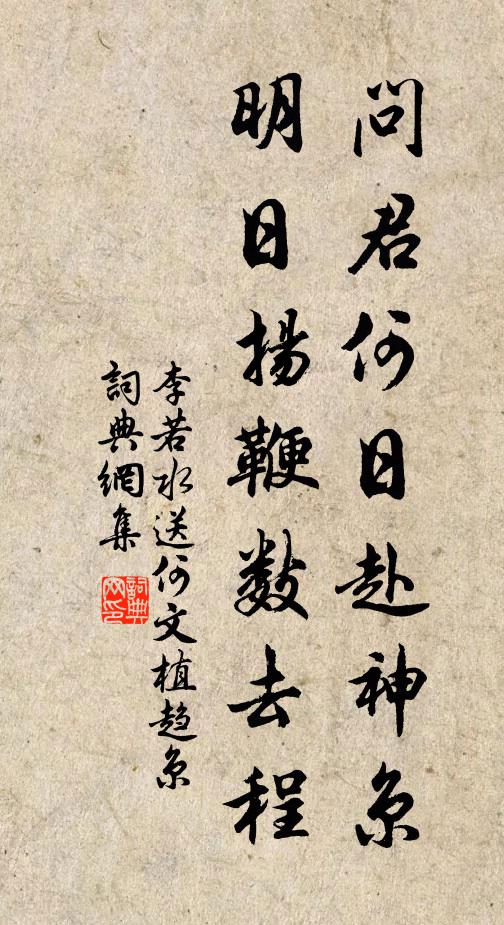 問君何日赴神京
明日揚鞭數去程
李若水送何文植趨京
詞典網集
詞典
网印